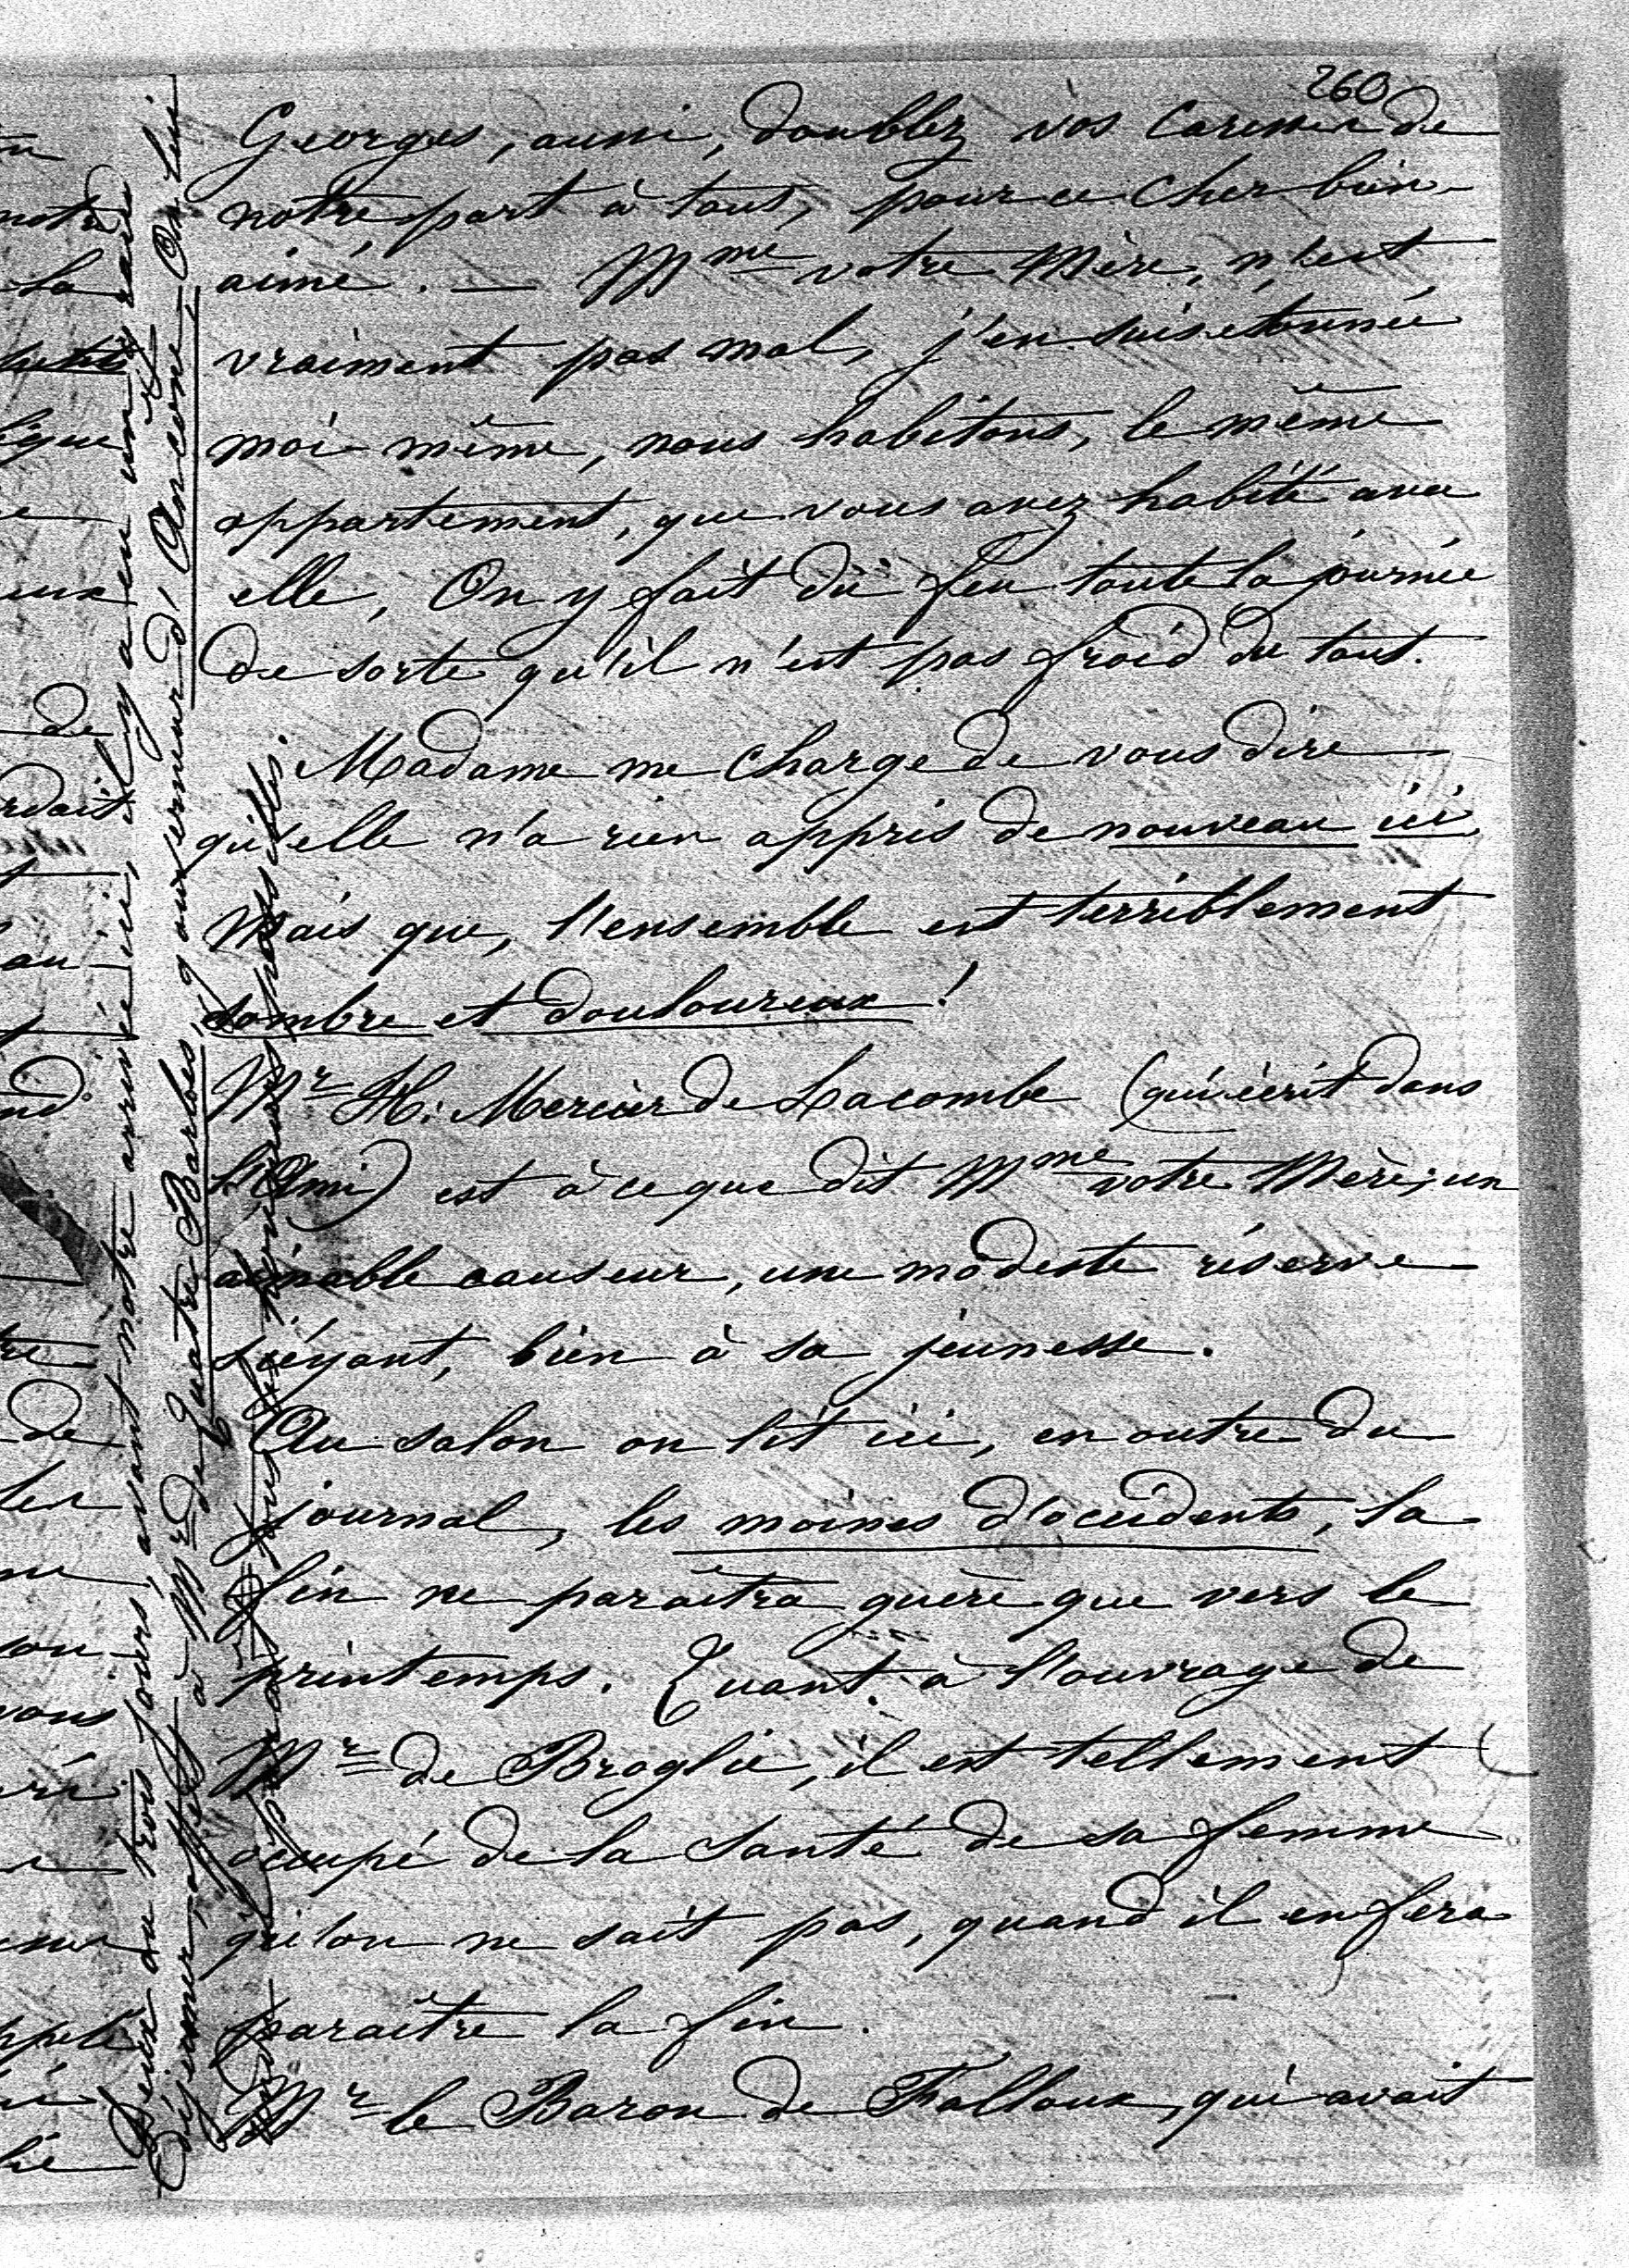 260
Georges, aussi, doublez vos caresses de
notre part à tous, pour ce cher bien-
aimé. — Mme votre Mère, n'est
vraiment pas mal, j'en suis étonnée
moi-même, nous habitons, le même
appartement, que vous avez habité avec
elle, On y fait du feu toute la journée
de sorte qu'il n'est pas froid du tout.
Madame me charge de vous dire
qu'elle n'a rien appris de nouveau ici,
Mais que, l'ensemble est terriblement
sombre et douloureux !
Mr H. Mercier de Lacombe (qui écrit dans
l'Ami) est à ce que dit Mme votre Mère, un
aimable causeur, une modeste réserve
siéyant, bien à sa jeunesse.
Au salon on lit ici, en outre du
journal, les moines d'occidents, la
fin ne paraîtra guère que vers le
printemps. Quant à l'ouvrage de
Mr de Broglie, il est tellement
occupé de la santé de sa femme
qu'on ne sait pas, quand il en fera
paraître la fin.
Mr le Baron de Falloux, qui avait
Deux ou trois jours, avant notre arrivée ici, il y a eu un grand
Déjeuner, offert à Mr de Quatre Barbes, gouverneur d'Ancone, On lui